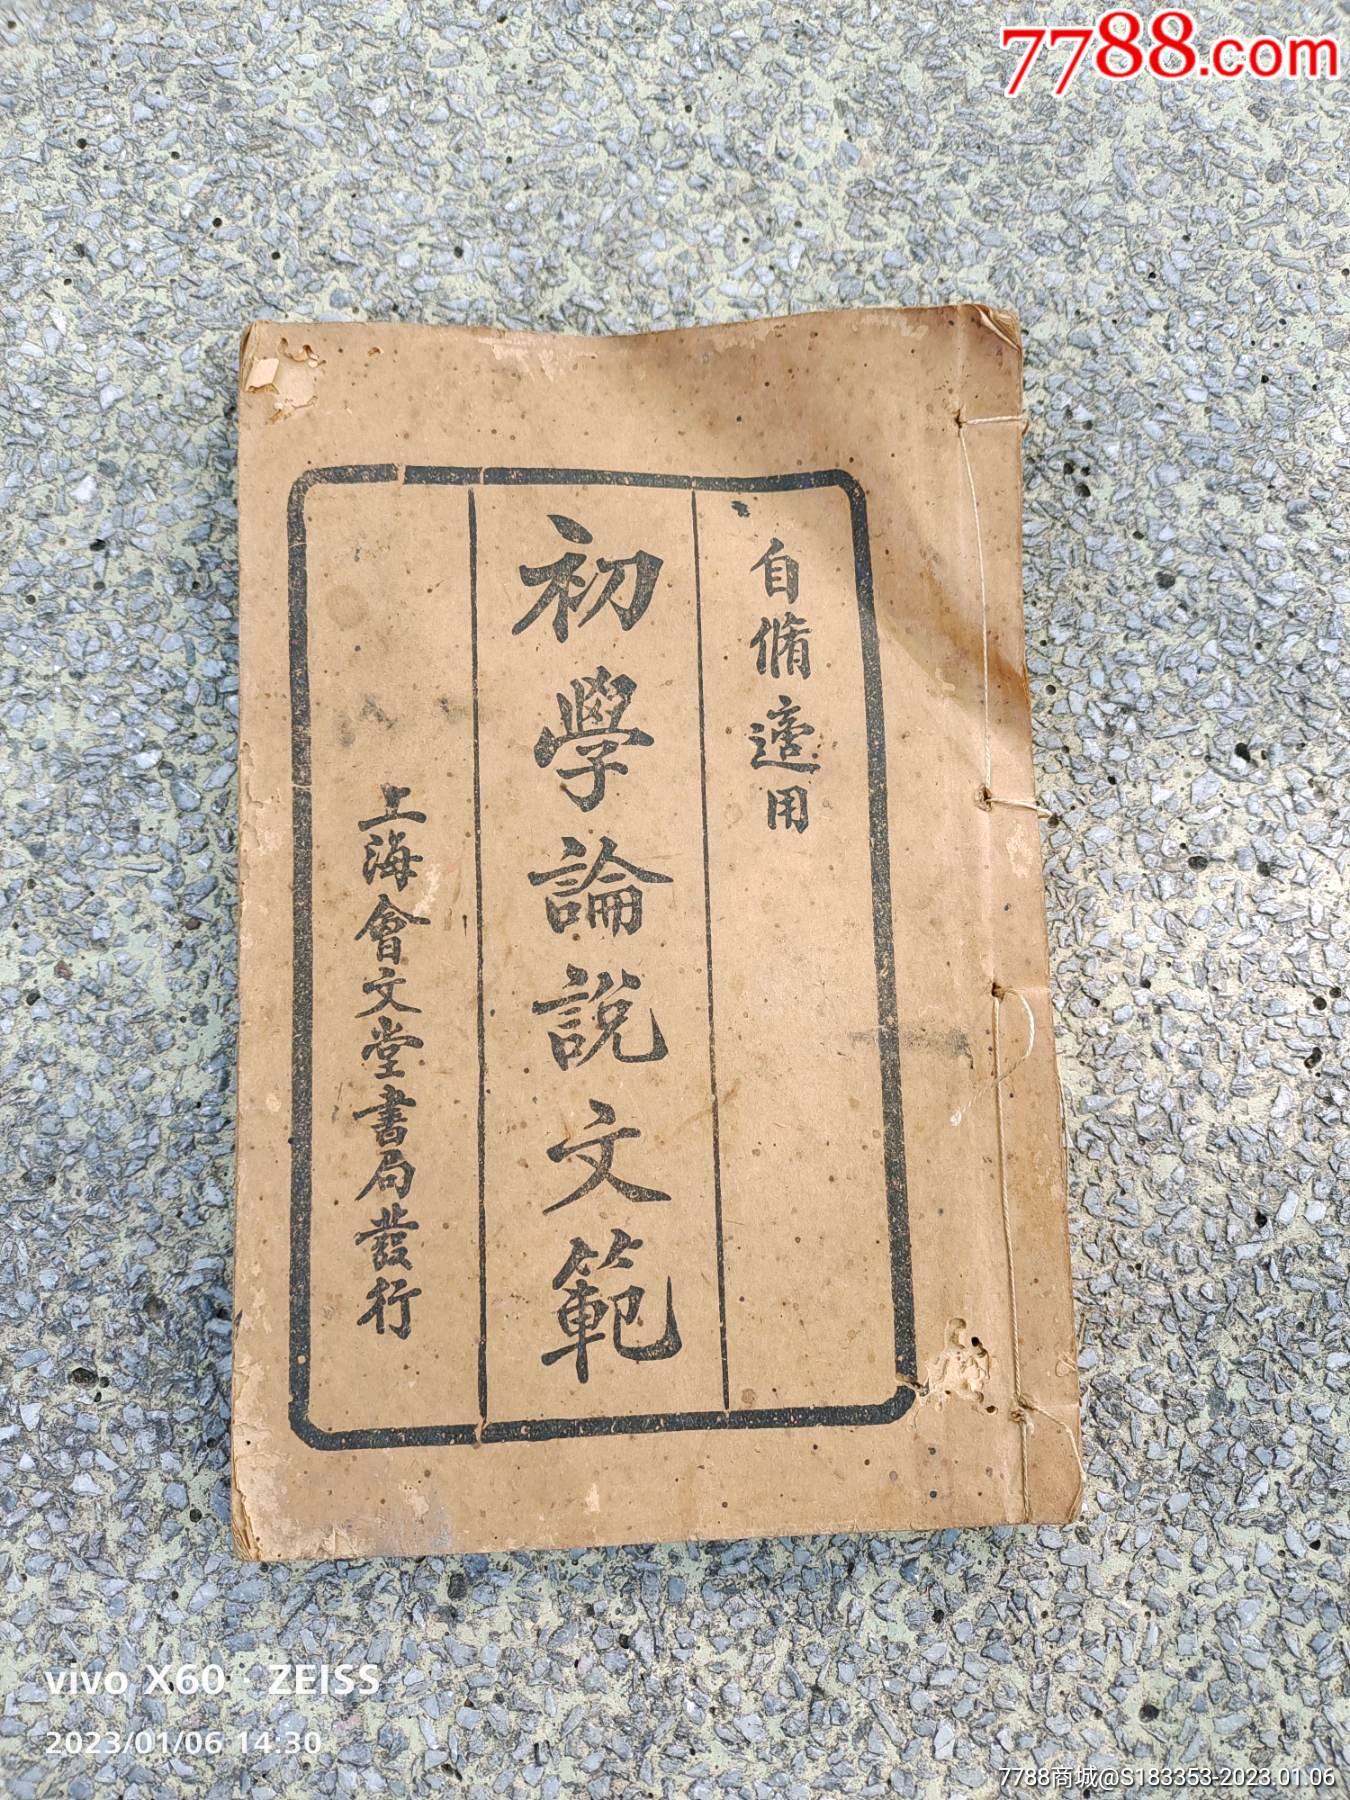 7788.com
自脩適用
初學論說文範
上海會文堂書局發行
vivo X60 · ZEISS
2023/01/06 14:30
7788商城@S183353-2023.01.06